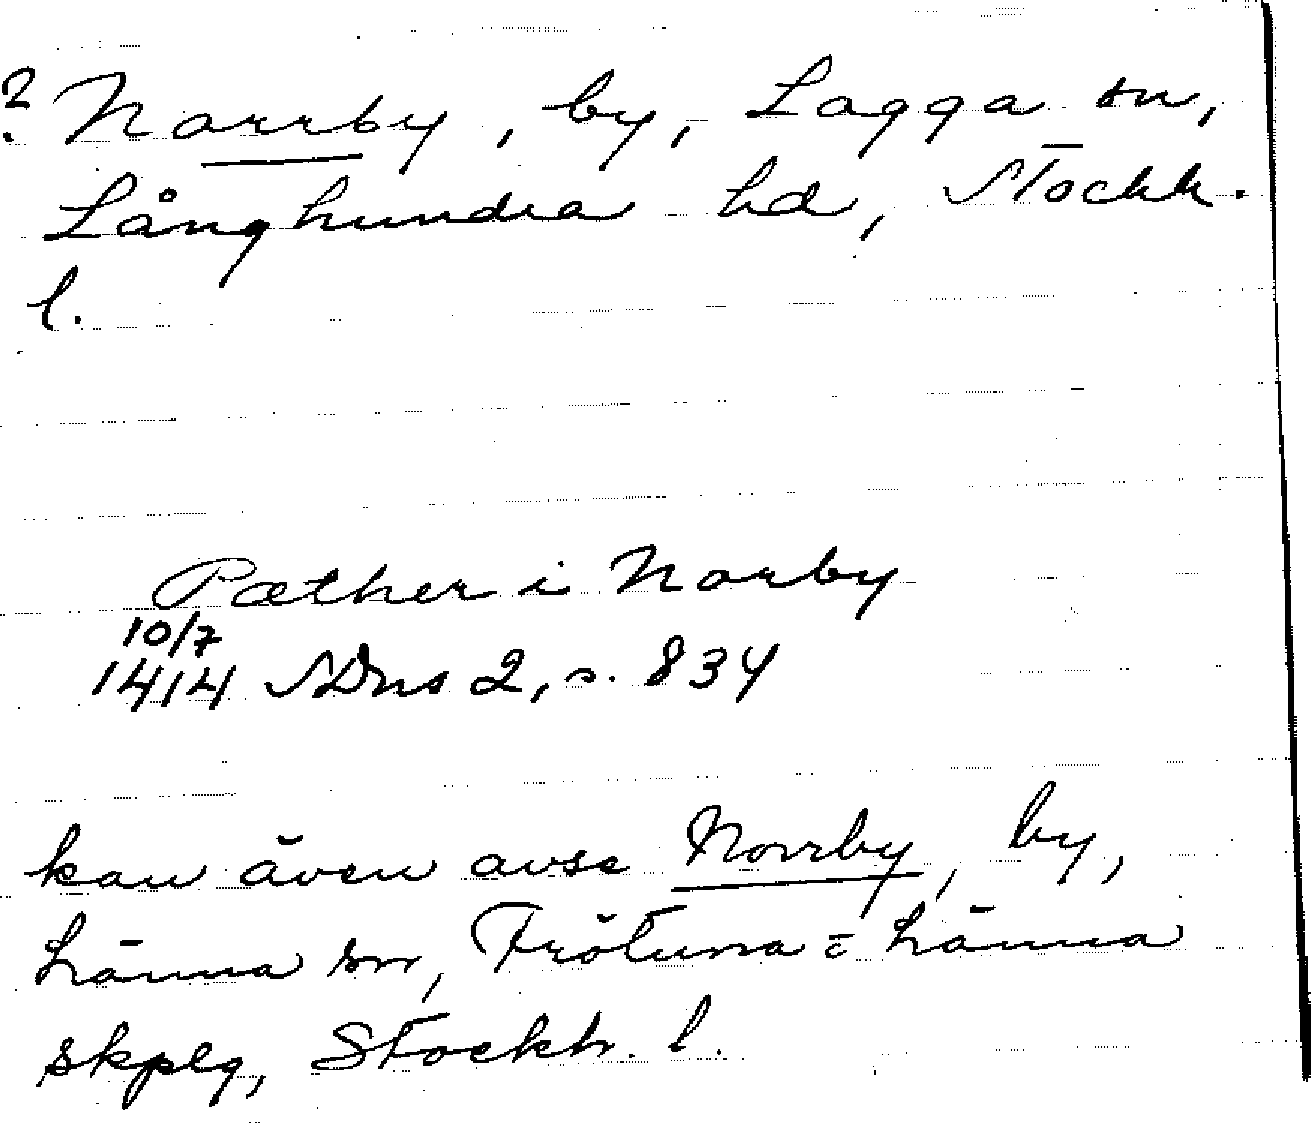 ? Norrby, by, Lagga sn,
Långhundra hd, Stockh.
l.
Pæther i Norby
10/7
1414 SDns 2, s. 834
kan även avse Norrby, by,
Länna sn, Frötuna o Länna
skplg, Stockh. l.